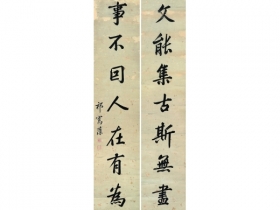 文能集古斯無盡
事不因人在有為
祁寯藻